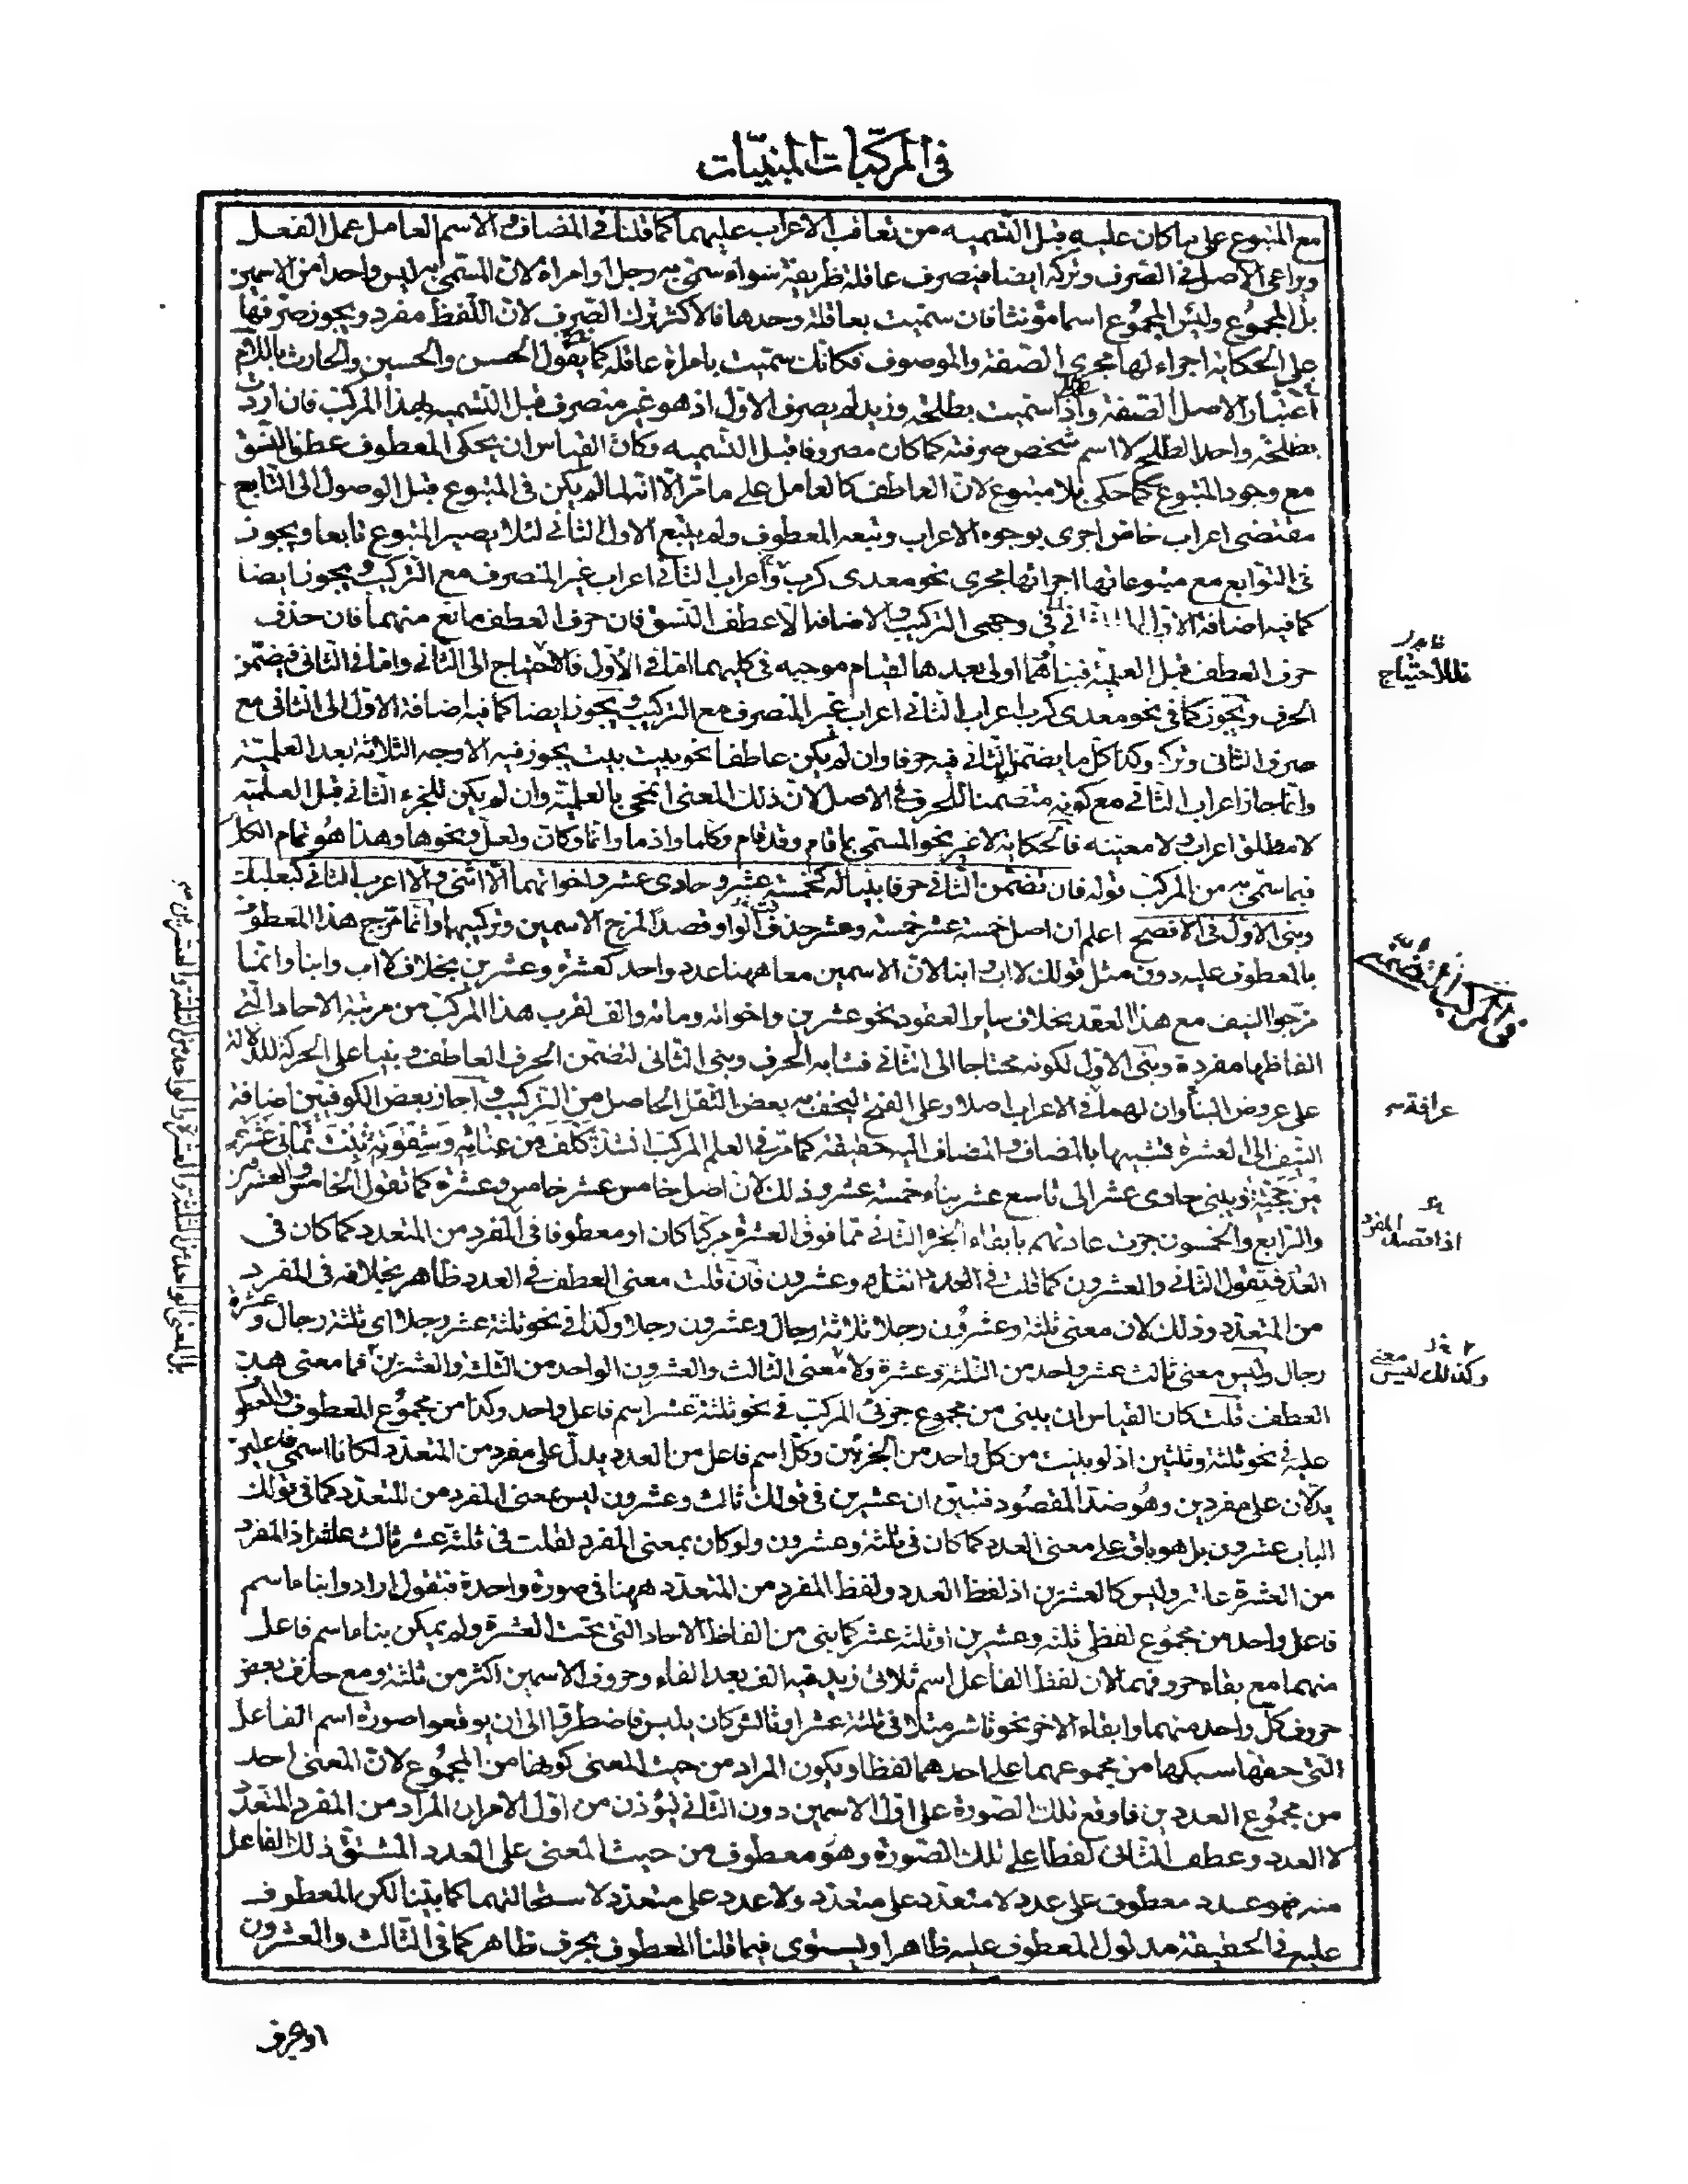 في المركّبات المبنيّات
مع المتبوع على ما كان عليه قبل التسميه من تعاقب الاعراب عليهما كما قلنا في المضاف والاسم العامل عمل الفعل
ويراعى الاصل في الصرف وتركه ايضا فيصرف عاقلة ظريفة سواء سمّى به رجل او امراة لانّ المسمّى به ليس واحدا من الاسمين
بل المجموع وليس المجموع اسما مؤنثا فان سمّيت بعاقلة وحدها فالاكثر ترك الصرف لانّ اللفظ مفرد ويجوز صرفها
على الحكاية اجراء لها مجرى الصّفة والموصوف فكانّك سمّيت بامراة عاقلة كما يقول الحسن والحسين والحارث باللام
اعتبار الاصل الصّفة واذا سمّيت بطلحة وزيد لم يصرف الاوّل اذ هو غير منصرف قبل التسميه بهذا المركّب فان اردت
بطلحة واحد الطلح لا اسم شخص صرفته كما كان مصروفا قبل التسميه وكان القياس ان يحكى المعطوف عطف النسق
مع وجود المتبوع كما حكى بلا متبوع لانّ العاطف كالعامل على ما مرّ الّا انّه لما لم يكن في المتبوع قبل الوصول الى التابع
مقتضى اعراب خاصّ اجرى بوجوه الاعراب وتبعه المعطوف ولم يتبع الاول الثاني لئلا يصير المتبوع تابعا ويجوز
في التوابع مع متبوعاتها اجرائها مجرى نحو معدى كرب واعراب الثاني اعراب غير المنصرف مع التركيب ويجوز ايضا
كما فيه اضافة الاوّل الى الثاني في وجهى التركيب والاضافه الا عطف النسق فان حرف العطف مانع منهما فان حذف
حرف العطف قبل العلميّة فبناؤهما اولى بعدها لقيام موجبه في كليهما امّا في الاوّل فالاحتياج الى الثاني وامّا في الثاني فيضمّن
الحرف ويجوز كما في نحو معدى كرب اعراب الثاني اعراب غير المنصرف مع التركيب ويجوز ايضا كما فيه اضافة الاوّل الى الثاني مع
صرف الثاني وتركه وكذا كلّ ما يضمّن الثاني فيه حرفا وان لم يكن عاطفا نحو بيت بيت يجوز فيه الاوجه الثلاثة بعد العلميّة
وانّما جاز اعراب الثاني مع كونه متضمنا للحرف في الاصل لانّ ذلك المعنى انمحى بالعلميّة وان لم يكن للجزء الثاني قبل العلميّة
لا مطلق اعراب ولا معينه فالحكاية لا غير نحو المسمّى بما قام وقد قام وكلما واذ ما وانّما وكانّ ولعلّ ونحوها وهذا هو تمام الكلام
فيما سمّى به من المركّب قوله فان تضمّن الثاني حرفا بنيا كخمسة عشر وحادى عشر واخواتهما الّا اثنى عشر والّا اعرب الثاني كبعلبك
وبنى الاوّل في الافصح اعلم ان اصل خمسة عشر خمسة وعشر حذف الواو قصدا لمزج الاسمين وتركيبهما وانّما مزج هذا المعطوف
بالمعطوف عليه دون مثل قولك لا اب وابنا لانّ الاسمين معا ههنا عدد واحد كعشرة وعشرين بخلاف لا اب وابنا وانّما
مزجوا النيف مع هذا العقد بخلاف ساير العقود نحو عشرين واخواته ومائة والف لقرب هذا المركّب من مرتبة الاحاد التى
الفاظها مفردة وبنى الاوّل لكونه محتاجا الى الثاني فشابه الحرف وبنى الثاني لتضمّن الحرف العاطف وبنيا على الحركة للدلالة
على عروض البناء وان لهما في الاعراب اصلا وعلى الفتح ليخف به بعض الثقل الحاصل من التركيب واجاز بعض الكوفيّين اضافة
النيف الى العشرة تشبيها بالمضاف والمضاف اليه حقيقة كما مرّ في العلم المركّب انشد كلّف من عنائه وشقوته بنت ثماني عشرة
من حجّته ويبنى حادى عشر الى تاسع عشر بناء خمسة عشر وذلك لانّ اصل خامس عشر خامس وعشرة كما تقول الخامس والعشرين
والرابع والخمسون جرت عادتهم بابقاء الجزء الثاني ممّا فوق العشرة مركّبا كان او معطوفا في المفرد من المتعدد كما كان في
العدد فتقول الثاني والعشرون كما قلت في العدد اثنان وعشرون فان قلت معنى العطف في العدد ظاهر بخلافه في المفرد
من المتعدّد وذلك لان معنى ثلثة وعشرون رجلا ثلاثة رجال وعشرون رجلا وكذا في نحو ثلثة عشر رجلا اى ثلثة رجال وعشرة
رجال وليس معنى ثالث عشر واحد من الثلثة وعشرة ولا معنى الثالث والعشرون الواحد من الثلثة والعشرين فما معنى هذا
العطف قلت كان القياس ان يبنى من مجموع جزئى المركّب في نحو ثلثة عشر اسم فاعل واحد وكذا من مجموع المعطوف والمعطوف
عليه في نحو ثلثة وثلثين اذ لو بنيت من كل واحد من الجزئين وكلّ اسم فاعل من العدد يدلّ على مفرد من المتعدّد لكانا اسمى فاعلين
يدلّان على مفردين وهو ضدّ المقصود فتبيّن ان عشرين في قولك ثالث وعشرون ليس بمعنى المفرد من المتعدّد كما في قولك
الباب عشرون بل هو باق على معنى العدد كما كان في ثلثة وعشرون ولو كان بمعنى المفرد لقلت في ثلثة عشر ثالث عاشر اذ المفرد
من العشرة عاشر وليس كالعشرين اذ لفظ العدد ولفظ المفرد من المتعدّد ههنا في صورة واحدة فنقول ارادوا بناء اسم
فاعل واحد من مجموع لفظى ثلثة وعشرين او ثلثة عشر كما بنى من الفاظ الاحاد التى تحت العشرة ولم يمكن بناء اسم فاعل
منهما مع بقاء حروفهما لان لفظ الفاعل اسم ثلاثى زيد فيه الف بعد الفاء وحروف الاسمين اكثر من ثلثة ومع حذف بعض
حروف كلّ واحد منهما وابقاء الاخر نحو ثاشر مثلا في ثلثة عشر او ثالش كان يلبس فاضطرّوا الى ان يوقعوا صورة اسم الفاعل
التى حقّها سبكها من مجموعهما على احدهما لفظا ويكون المراد من حيث المعنى كونها من المجموع لانّ المعنى احد
من مجموع العددين فاوقع تلك الصورة على اوّل الاسمين دون الثاني ليؤذن من اوّل الامر ان المراد من المفرد المتعدّد
لا العدد وعطف الثاني لفظا على تلك الصّورة وهو معطوف من حيث المعنى على العدد المشتقّ ذلك الفاعل
منه فهو عدد معطوف على عدد لا متعدّد على متعدّد ولا عدد على متعدّد لاستحالتهما كما بيّنا لكن المعطوف
عليه في الحقيقة مدلول المعطوف عليه ظاهرا ويستوى فيما قلنا المعطوف بحرف ظاهر كما في الثالث والعشرون
فللاحتياج
في المركب المتضمّن
عرافة
اذا قصد المفرد
وكذلك ليس معنى
او بحرف